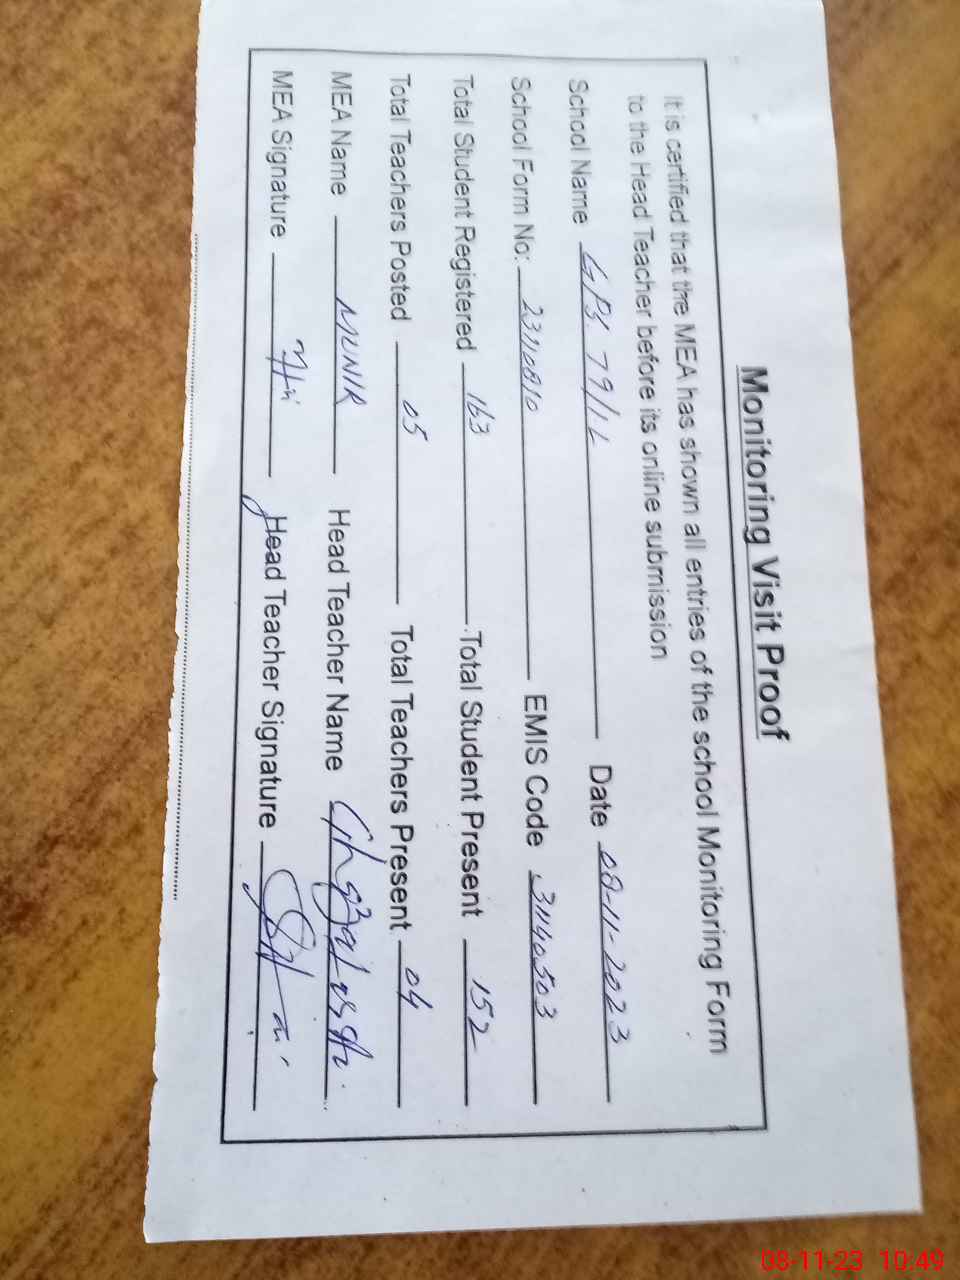 Monitoring Visit Proof
It is certified that the MEA has shown all entries of the school Monitoring Form
to the Head Teacher before its online submission
School Name GPS 79/1.L Date 08-11-2023
School Form No: 23110810 EMIS Code 31140503
Total Student Registered 163 Total Student Present 152
Total Teachers Posted 05 Total Teachers Present 04
MEA Name MUNIR Head Teacher Name
MEA Signature Head Teacher Signature
08-11-23 10:49